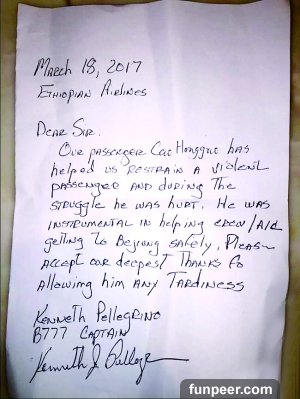 MARCH 18, 2017
ETHIOPIAN AIRLINES
DEAR SIR:
OUR PASSENGER CAO HONGGUO HAS
helped us RESTRAIN A violent
PASSENGER AND DURING THE
STRUGGLE HE WAS HURT. HE WAS
INSTRUMENTAL IN HELPING CREW/Aid
getting to Beijing safely. Please
ACCEPT OUR DEEPEST THANKS fo
Allowing him ANY TARDINESS
KENNETH PELLEGRINO
B777 CAPTAIN
Kenneth J. Pellegr
funpeer.com